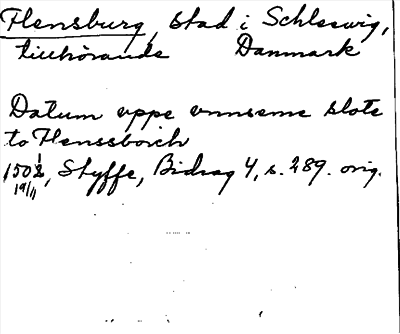 Flensburg, stad i Schleswig,
tillhörande Danmark
Datum uppe vnnseme slote
to Flenssborch
1502 19/11, Styffe, Bidrag 4, s. 289. orig.